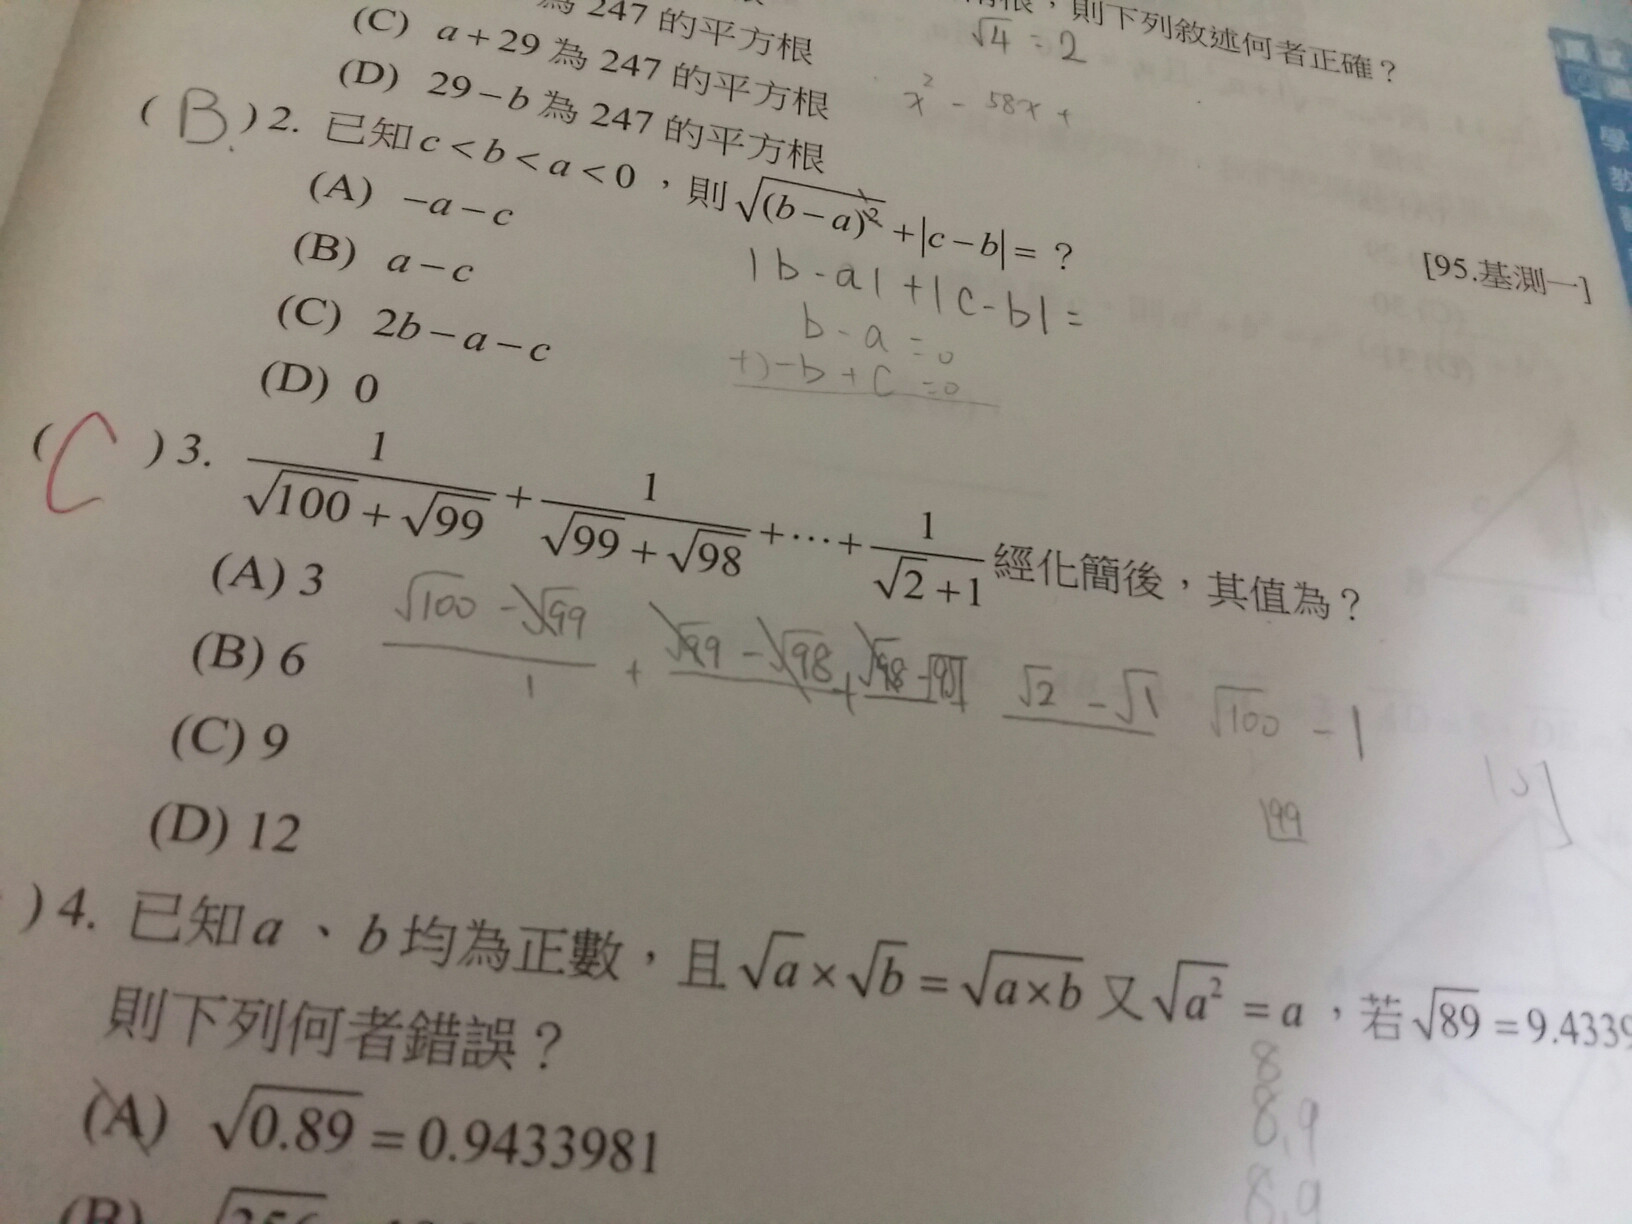 為 247 的平方根
，則下列敘述何者正確？
(C) a+29 為 247 的平方根
√4 = 2
(D) 29−b 為 247 的平方根
x² - 58x +
( B ) 2. 已知 c<b<a<0 ，則 √(b−a)² +|c−b|= ？
[95.基測一]
(A) −a−c
|b-a|+|c-b| =
(B) a−c
b-a =0
(C) 2b−a−c
+)-b+c =0
(D) 0
( C ) 3. 1/(√100+√99) + 1/(√99+√98) +⋯+ 1/(√2+1) 經化簡後，其值為？
(A) 3
(√100 - √99)/1 + √99 - √98 + √98 - √97 + √2 - √1 √100 - 1
(B) 6
(C) 9
(D) 12
) 4. 已知 a 、 b 均為正數，且 √a×√b=√a×b 又 √a² =a ，若 √89 =9.4339
則下列何者錯誤？
8
8.9
8.9
(A) √0.89 =0.9433981
(B) √256